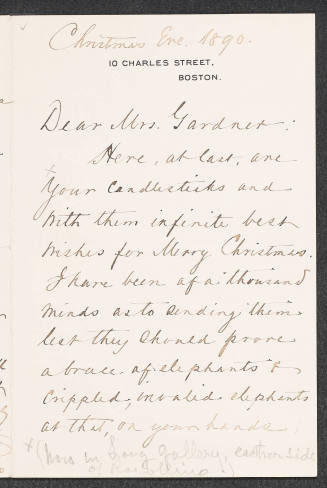 Christmas Eve. 1890.
10 CHARLES STREET,
BOSTON.
Dear Mrs. Gardner:
Here, at last, are
your candlesticks and
with them infinite best
wishes for Merry Christmas.
I have been of a thousand
minds as to sending them
lest they should prove
a brace of elephants &
crippled, invalid elephants
at that, on your hands.
x (now in Long Gallery, eastern side
of